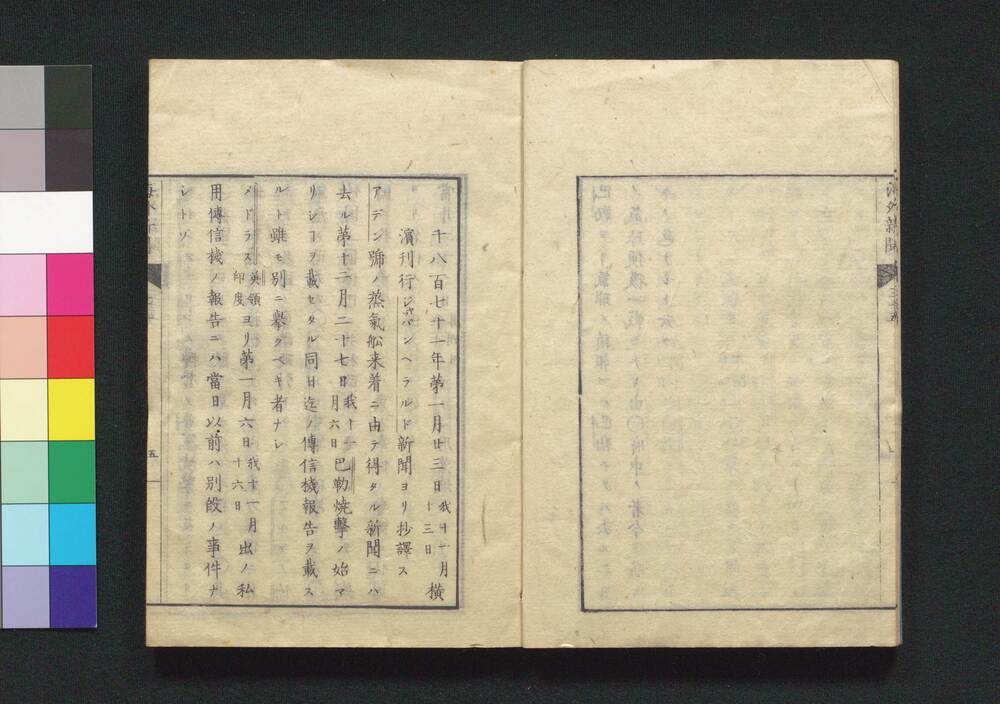 海外新聞
千八百七十一年第一月廿三日我十一月十三日横
濱刊行ジャパンヘラルド新聞ヨリ抄譯ス
アデン號ノ蒸氣舩来着ニ由テ得タル新聞ニハ
去ル第十二月二十七日我十一月六日巴勒焼擊ノ始マ
リシヿヲ載セタル同日迄ノ傳信機報告ヲ載ス
ルト雖モ別ニ擧クベキ者ナシ
メドラス英領印度ヨリ第一月六日我十一月十六日出ノ私
用傳信機ノ報告ニハ當日以前ハ別段ノ事件ナ
シトゾ
五